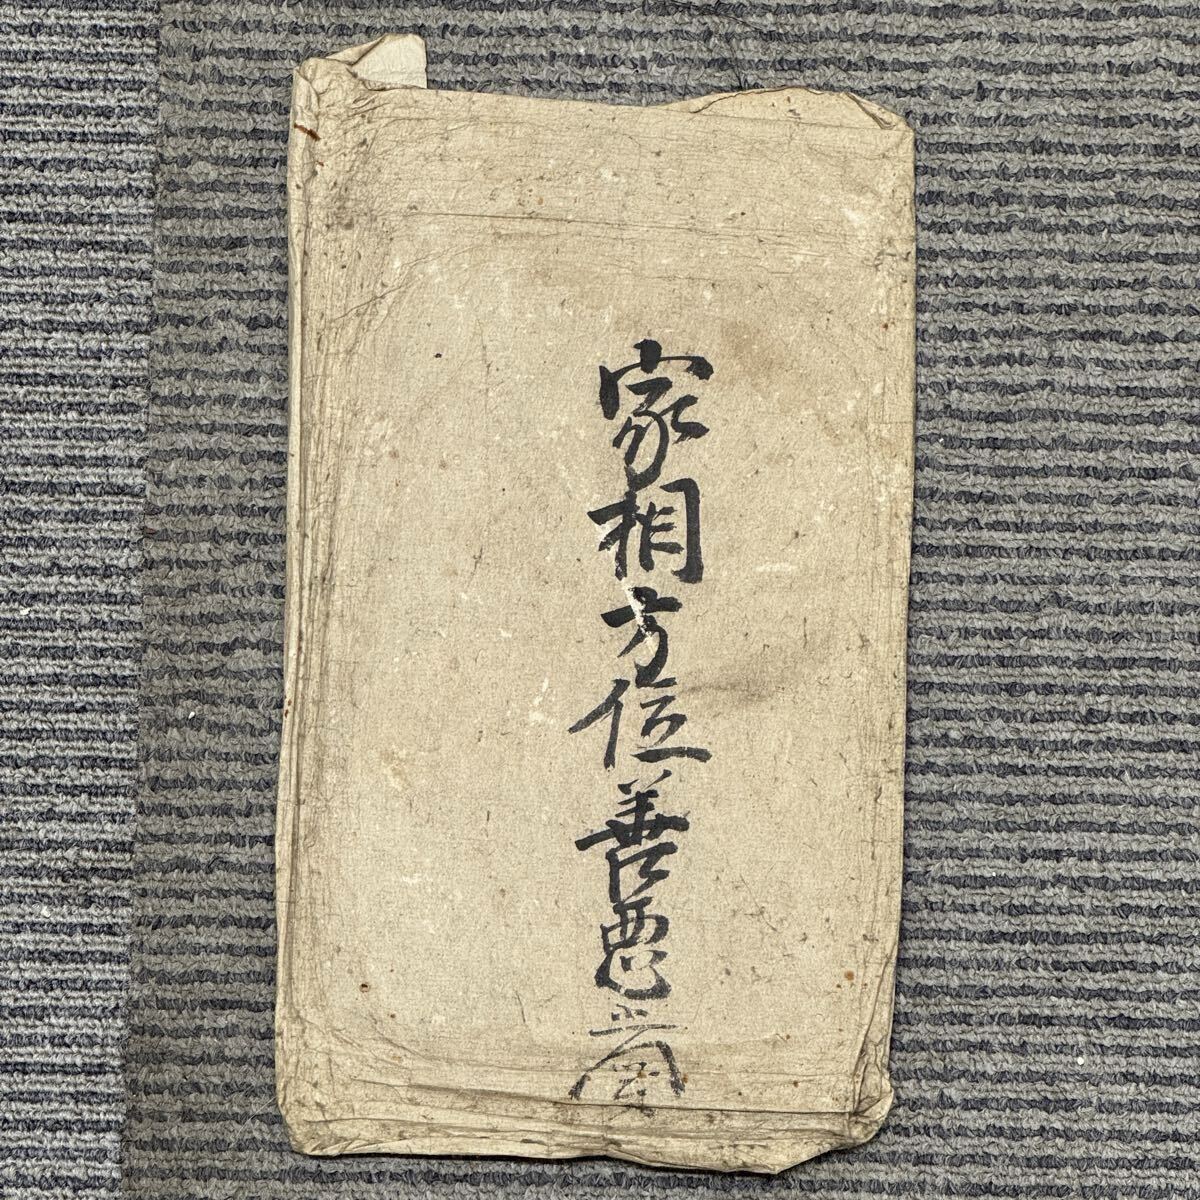 家相方位善悪